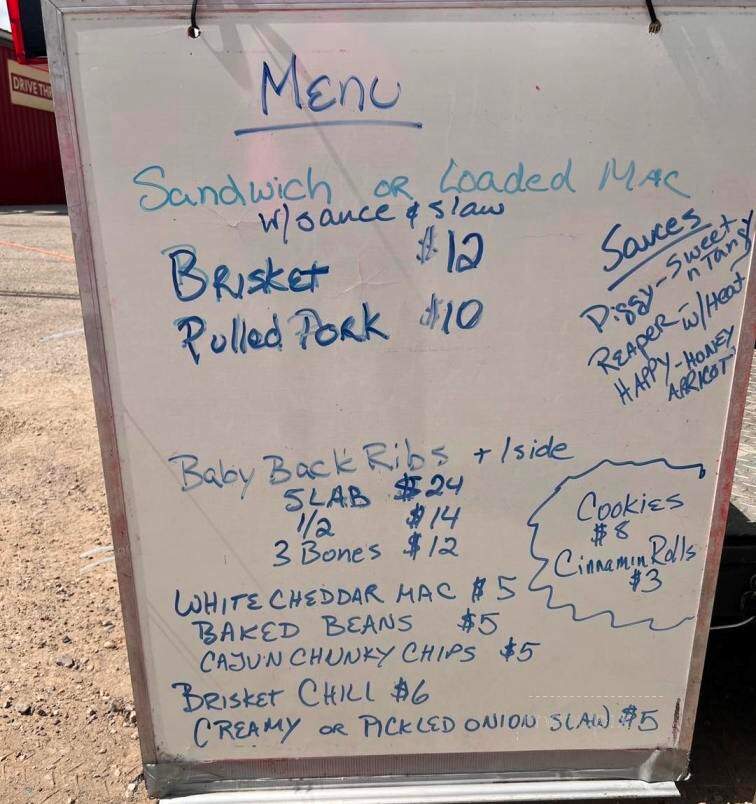 DRIVE THR
Menu
Sandwich or Loaded Mac
w/sauce & slaw
Brisket $12
Pulled Pork $10
Sauces
Piggy-Sweet
n Tangy
Reaper-
w/Heat
Happy-Honey
Apricot
Baby Back Ribs + 1side
SLAB $24
1/2 $14
3 Bones $12
Cookies
$8
Cinnamin Rolls
$3
WHITE CHEDDAR MAC $5
BAKED BEANS $5
CAJUN CHUNKY CHIPS $5
Brisket CHILI $6
CREAMY or PICKLED ONION SLAW $5